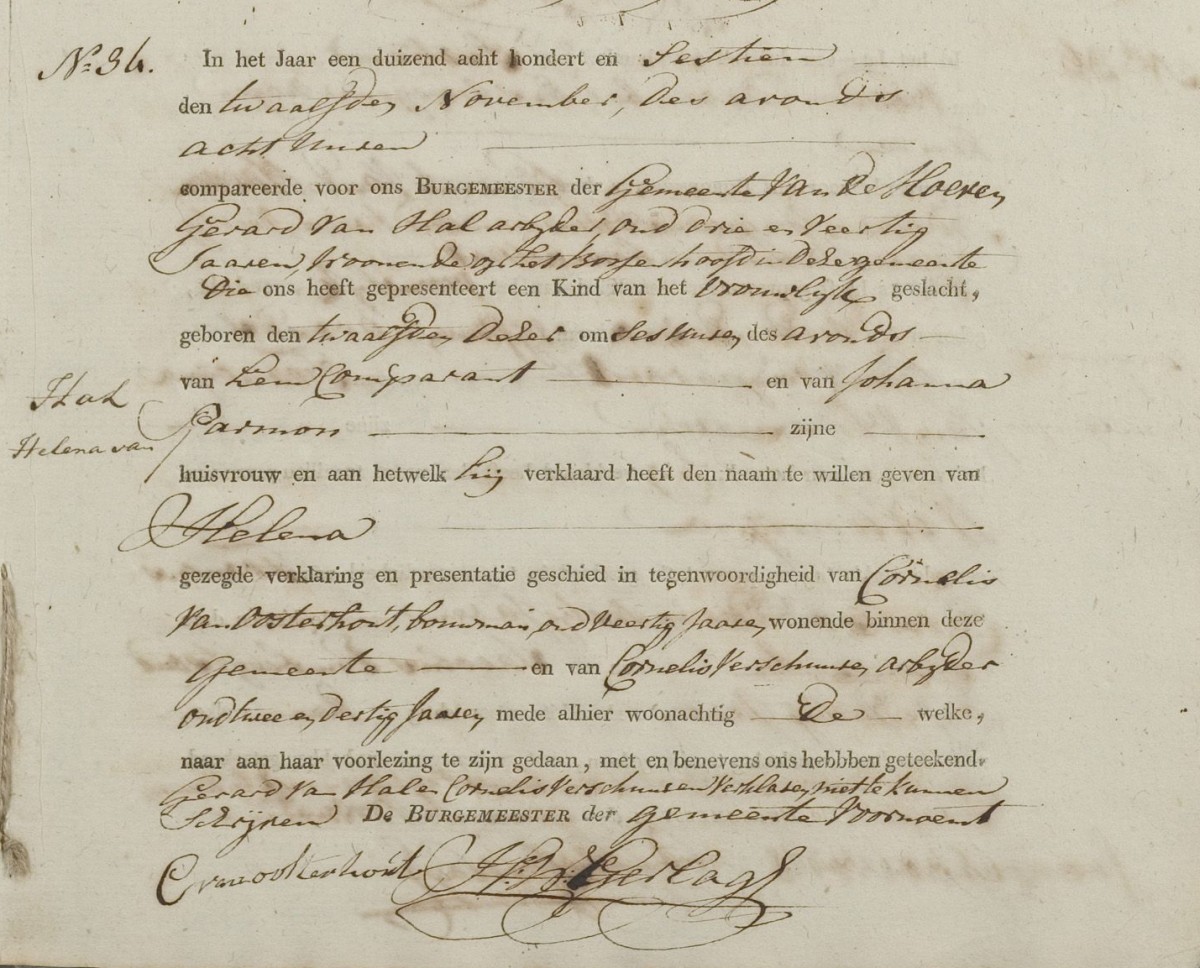 No 34.
In het Jaar een duizend acht hondert en Sestien
den twaalfden November, des avonds
acht Uuren
compareerde voor ons BURGEMEESTER der Gemeente Van de Hoeven
Gerard Van Hal arbyder, oud drie en Veertig
Jaaren, Woonende op het Bossenhoofd in deze gemeente
Die ons heeft gepresenteert een Kind van het Vrouwlyk geslacht,
geboren den twaalfden Dezer om Ses Uuren des avonds
van hem Comparant en van Johanna
Hal
Helena van
Parmon zijne
huisvrouw en aan hetwelk hij verklaard heeft den naam te willen geven van
Helena
gezegde verklaring en presentatie geschied in tegenwoordigheid van Cornelis
Van Oosterhout, bouwman, oud Veertig Jaaren, wonende binnen deze
gemeente en van Cornelis Verschuuren, arbyder
oud twee en dertig Jaaren, mede alhier woonachtig De welke,
naar aan haar voorlezing te zijn gedaan, met en benevens ons hebbben geteekend.
Gerard Van Hal en Cornelis Verschuuren Verklaren niet te kunnen
Schrijven De BURGEMEESTER der gemeente Voornoemt
C van oosterhout Gerlag